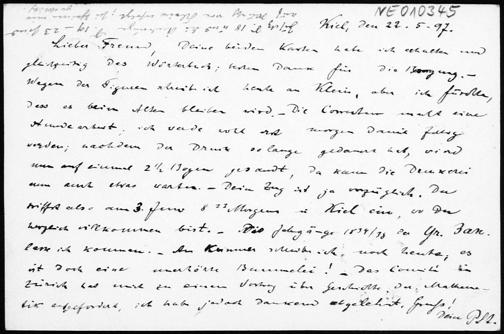 NE010345
Kiel, den 22.5.97.
Lieber Freund, Deine beiden Karten habe ich erhalten und
gleichzeitig das Wörterbuch; schönen Dank für die Besorgung. –
Wegen der Figuren schreibe ich heute an Klein, aber ich fürchte,
dass es beim Alten bleiben wird. – Die Correctur macht eine
ich werde wohl erst morgen damit fertig
werden; nachdem der Druck so lange gedauert hat, wird
nun auf einmal 2½ Bogen gesandt, da kann die Druckerei
nun auch etwas warten. – Dein Zug ist ja vorzüglich. Du
triffst also am 3. Juni 8 23 Morgens in Kiel ein, wo Du
herzlich willkommen bist. – Die Jahrgänge 1837/38 der
lasse ich kommen. – An Kummer schreibe ich noch heute; es
ist doch eine unerhörte Bummelei! – Das Comité in
Zürich hat mich zu einem Vortrag über Geschichte der Mathema-
tik aufgefordert, ich habe jedoch dankend abgelehnt. Gruss!
Dein P. St.